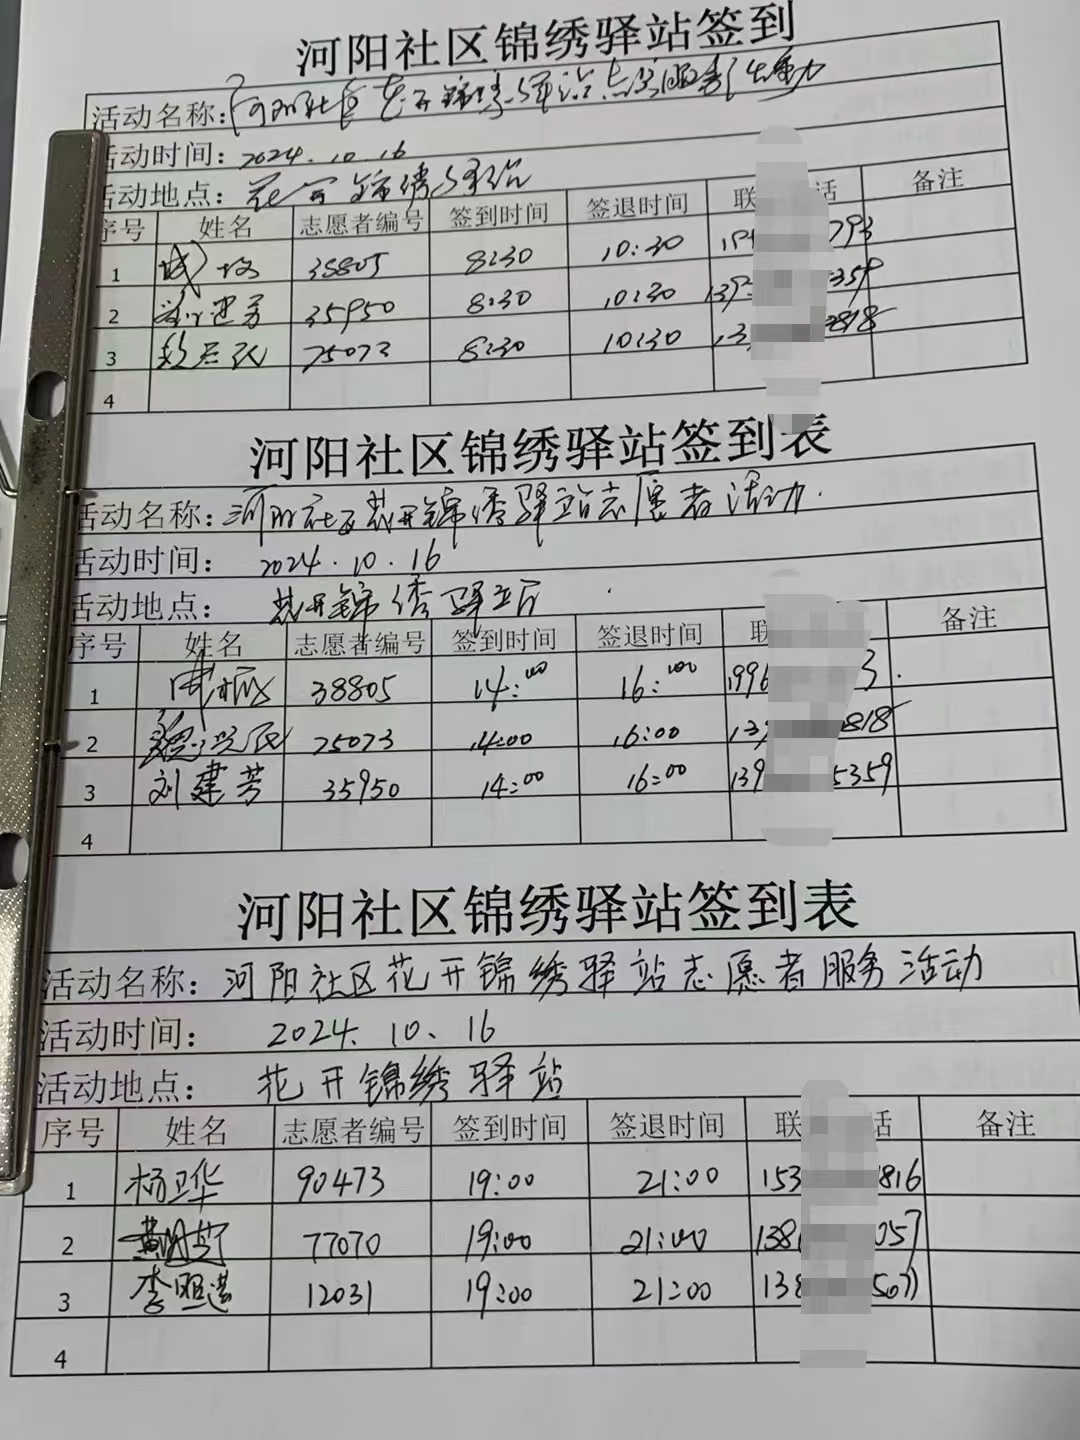 河阳社区锦绣驿站签到
活动名称：河阳社区花开锦绣驿站志愿服务活动
活动时间：2024.10.16
活动地点：花开锦绣驿站
序号 姓名 志愿者编号 签到时间 签退时间 联 话 备注
1 38805 8:30 10:30 793
2 刘建芳 35950 8:30 10:30 139 359
3 75073 8:30 10:30 13 2818
4
河阳社区锦绣驿站签到表
活动名称：河阳社区花开锦绣驿站志愿者活动.
活动时间： 2024.10.16
活动地点： 花开锦绣驿站
序号 姓名 志愿者编号 签到时间 签退时间 联 备注
1 38805 14:00 16:00 1996 3.
2 75073 14:00 16:00 13 818
3 刘建芳 35950 14:00 16:00 139 5359
4
河阳社区锦绣驿站签到表
活动名称：河阳社区花开锦绣驿站志愿者服务活动
活动时间： 2024.10.16
活动地点： 花开锦绣驿站
序号 姓名 志愿者编号 签到时间 签退时间 联 话 备注
1 杨卫华 90473 19:00 21:00 153 1816
2 77070 19:00 21:00 138 057
3 李照湛 12031 19:00 21:00 138 5077
4